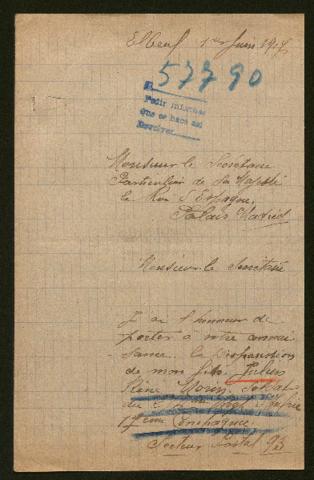 Elbeuf 1er Juin 1917
57790
Pedir informes
que se hace así
Monsieur le Secrétaire
Particulier de Sa Majesté
le Roi d'Espagne.
Palais Madrid
Monsieur le Secrétaire
J'ai l'honneur de
porter à votre connais-
sance la disparition
de mon fils Julien
René Morin Soldat
du
17eme Compagnie
Secteur Postal 93